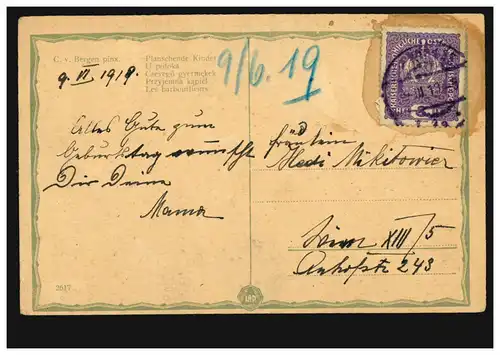 C. v. Bergen pinx.
Planschende Kinder
U potoka
Csevegő gyermekek
Przyjemna kąpiel
Les barbouillons
9. VI. 1919.
9/6. 19
Alles Gute zum
Geburtstag wünscht
Dir Deine
Mama
Fräulein
Hedi Nikitowicz
Wien XIII/5
243
2617